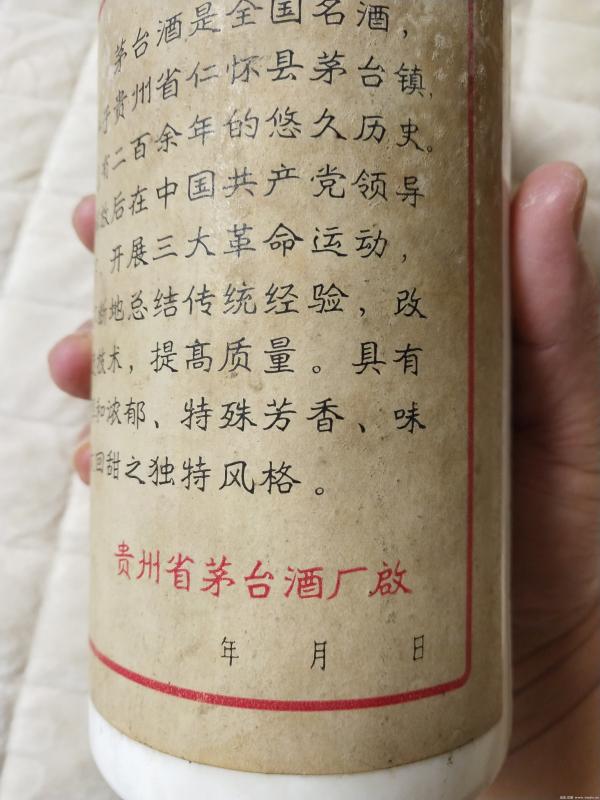 茅台酒是全国名酒，
于贵州省仁怀县茅台镇，
有二百余年的悠久历史。
放后在中国共产党领导
、开展三大革命运动，
断地总结传统经验，改
技术，提高质量。具有
和浓郁、特殊芳香、味
回甜之独特风格。
贵州省茅台酒厂啟
年 月 日